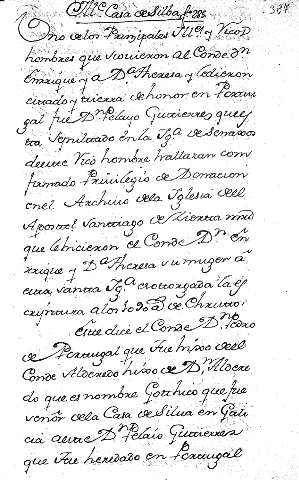 Casa de Silba f. 285
387
Uno de los Principales
hombres que sirvieron al Conde Dn
Enrrique y a Da Theresa y tedieron
estado y tierra de honor en Portu
gal fue Dn Pelayo Gutierrez que es
ta sepultado en la Yga de
de este Rico hombre hallaran con
firmado Privilegio de Donacion
en el Archivo de la Iglesia del
Apostol Santiago de
que le hicieron el Conde Dn En
rrique y Da Theresa su muger a
esta santa Yga otorgada la es
cryptura a los de Christo:
este dice el Conde Dn Pedro
de Portugal que fue hixo del
Conde Alderedo hixo de Dn Aldere
do que es nombre Gothico que fue
señor de la Casa de Silua en Gali
cia a este Dn Pelaio Gutierrez
que fue heredado en Portugal